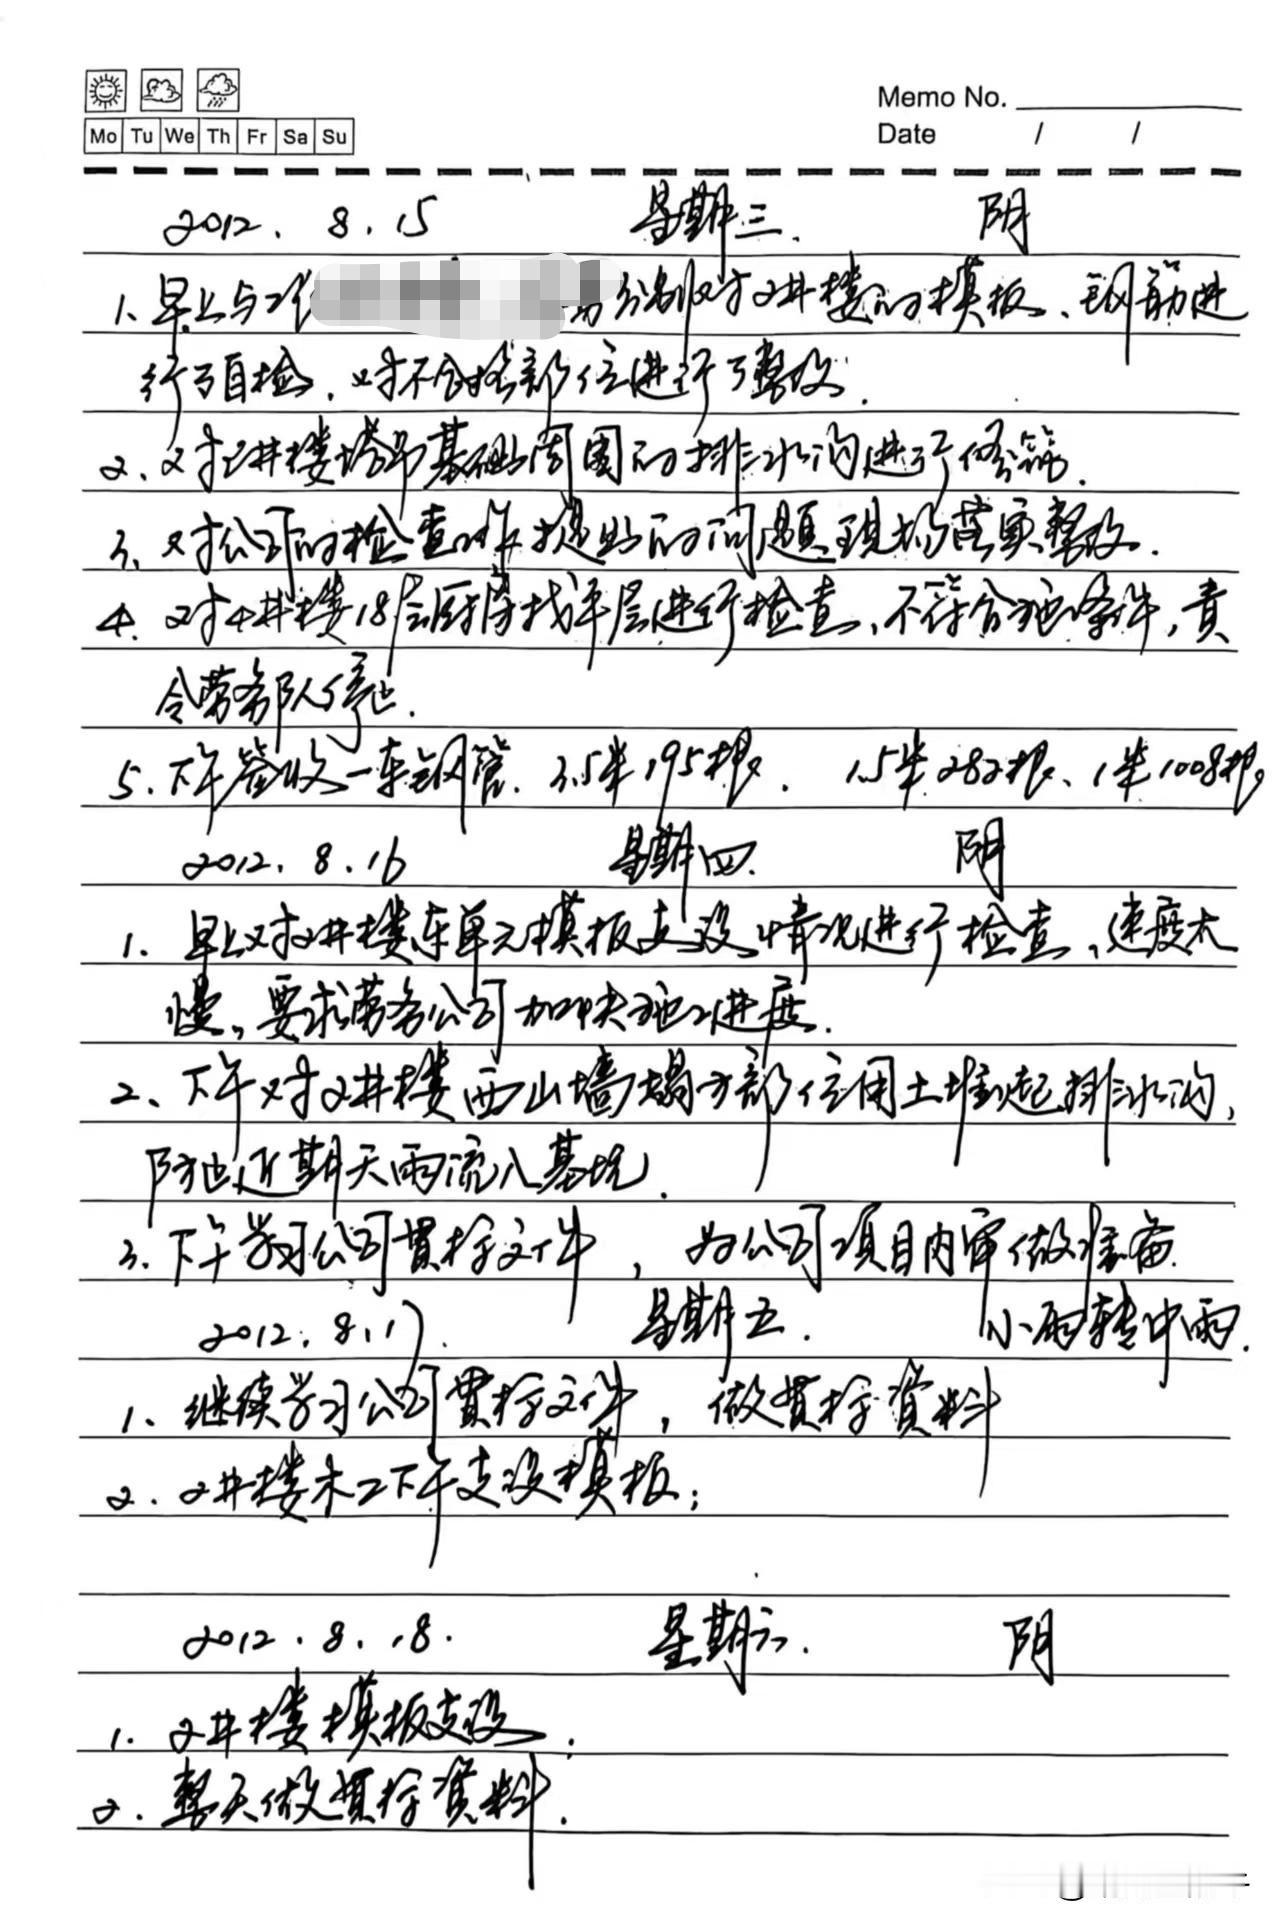 Memo No.
Mo Tu We Th Fr Sa Su
Date / /
2012. 8. 15 星期三. 阴
1. 早上与 分别对2#楼的模板、钢筋进
行了自检, 对不合格部位进行了整改.
2. 对2#楼塔吊基础周围的排水沟进行修筑.
3. 对公司的检查时提出的问题现场落实整改.
4. 对4#楼18层厨房找平层进行检查, 不符合施条件, 责
令劳务队停.
5. 下午签收一车钢管. 3.5米195根. 1.5米282根、1米1008根
2012. 8. 16 星期四. 阴
1. 早上对2#楼东单元模板支设情况进行检查, 速度太
慢, 要求劳务公司加快施工进度.
2. 下午对2#楼西山墙塌方部位用土堆起排水沟,
防止近期天雨流入基坑.
3. 下午学习公司贯标文件, 为公司项目内审做准备
2012. 8. 17 星期五. 小雨转中雨.
1. 继续学习公司贯标文件, 做贯标资料
2. 2#楼木工下午支设模板;
2012. 8. 18. 星期六. 阴
1. 2#楼模板支设;
2. 整天做贯标资料.